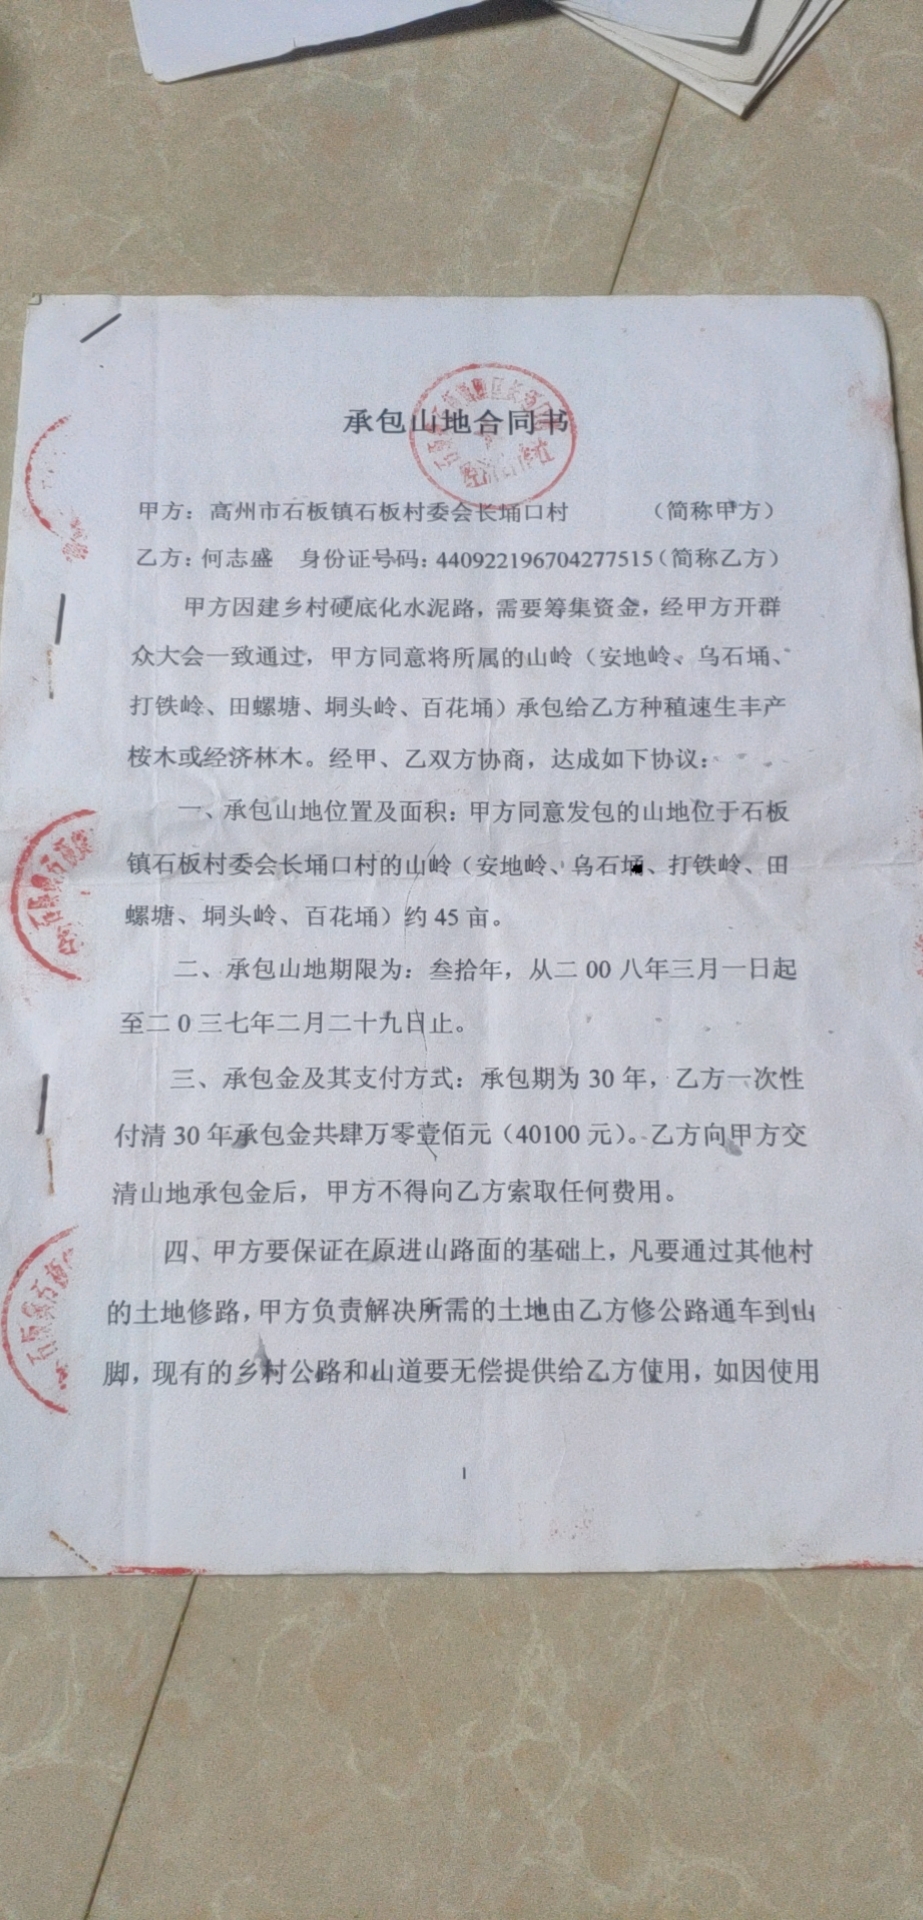 承包山地合同书
甲方：高州市石板镇石板村委会长埇口村 （简称甲方）
乙方：何志盛 身份证号码：440922196704277515（简称乙方）
甲方因建乡村硬底化水泥路，需要筹集资金，经甲方开群
众大会一致通过，甲方同意将所属的山岭（安地岭、乌石埇、
打铁岭、田螺塘、垌头岭、百花埇）承包给乙方种稙速生丰产
桉木或经济林木。经甲、乙双方协商，达成如下协议：
一、承包山地位置及面积：甲方同意发包的山地位于石板
镇石板村委会长埇口村的山岭（安地岭、乌石埇、打铁岭、田
螺塘、垌头岭、百花埇）约 45 亩。
二、承包山地期限为：叁拾年，从二 00 八年三月一日起
至二 0 三七年二月二十九日止。
三、承包金及其支付方式：承包期为 30 年，乙方一次性
付清 30 年承包金共肆万零壹佰元（40100 元）。乙方向甲方交
清山地承包金后，甲方不得向乙方索取任何费用。
四、甲方要保证在原进山路面的基础上，凡要通过其他村
的土地修路，甲方负责解决所需的土地由乙方修公路通车到山
脚，现有的乡村公路和山道要无偿提供给乙方使用，如因使用
1